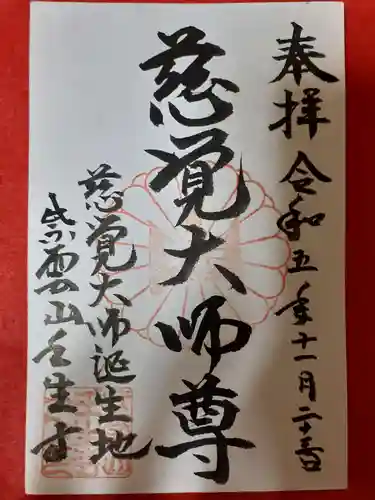 奉拝
令和五年十一月二十三日
慈覚大師尊
慈覚大師誕生地
紫雲山壬生寺